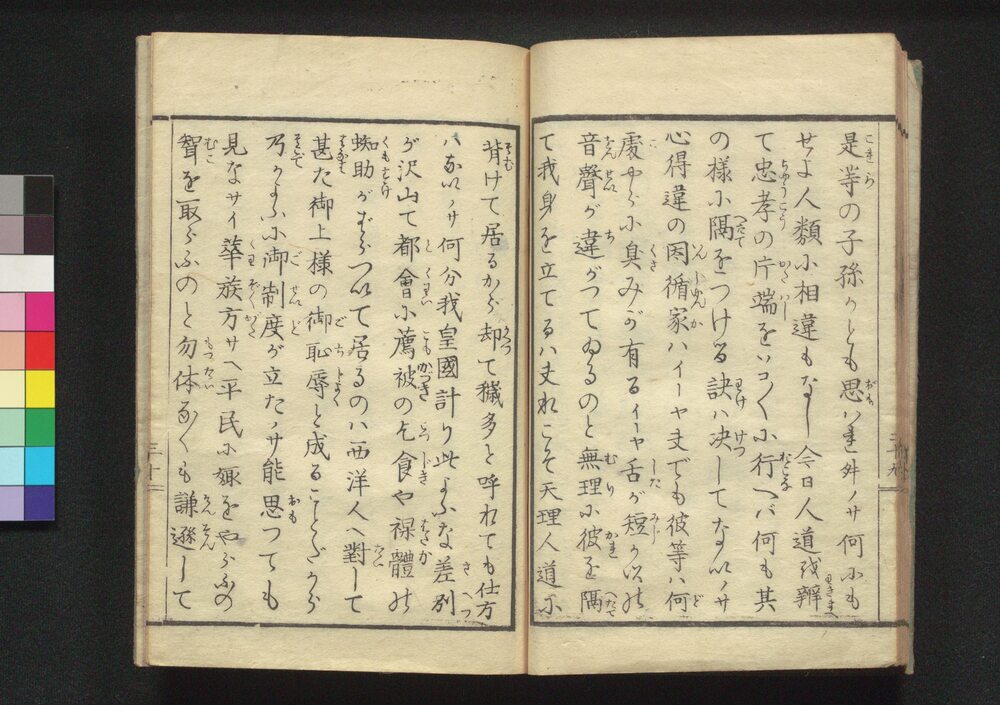 是等の子孫かとも思ハれ舛ノサ何小も
せよ人類小相違もなし今日人道越辨
て忠孝の片端をいコ〳〵小行へバ何も其
の様小隔をつける訣ハ决してないノサ
心得違の因循家ハイーヤ夫でも彼等ハ何
處やら小臭みが有るイーヤ舌が短かいの
音聲が違がつてゐるのと無理小彼を隔
て我身を立てるハ夫れこそ天理人道に
背けて居るから却て穢多と呼れても仕方
ハないノサ何分我皇國計り此よふな差別
が沢山て都會小薦被の乞食や裸體の
蜘助がぶらついて居るのハ西洋人へ對して
甚た御上様の御恥辱と成ることだから
乃かよふ小御制度が立たノサ能思つても
見なサイ華族方サへ平民に娵をやらふの
聟を取らふのと勿体なくも謙遜して